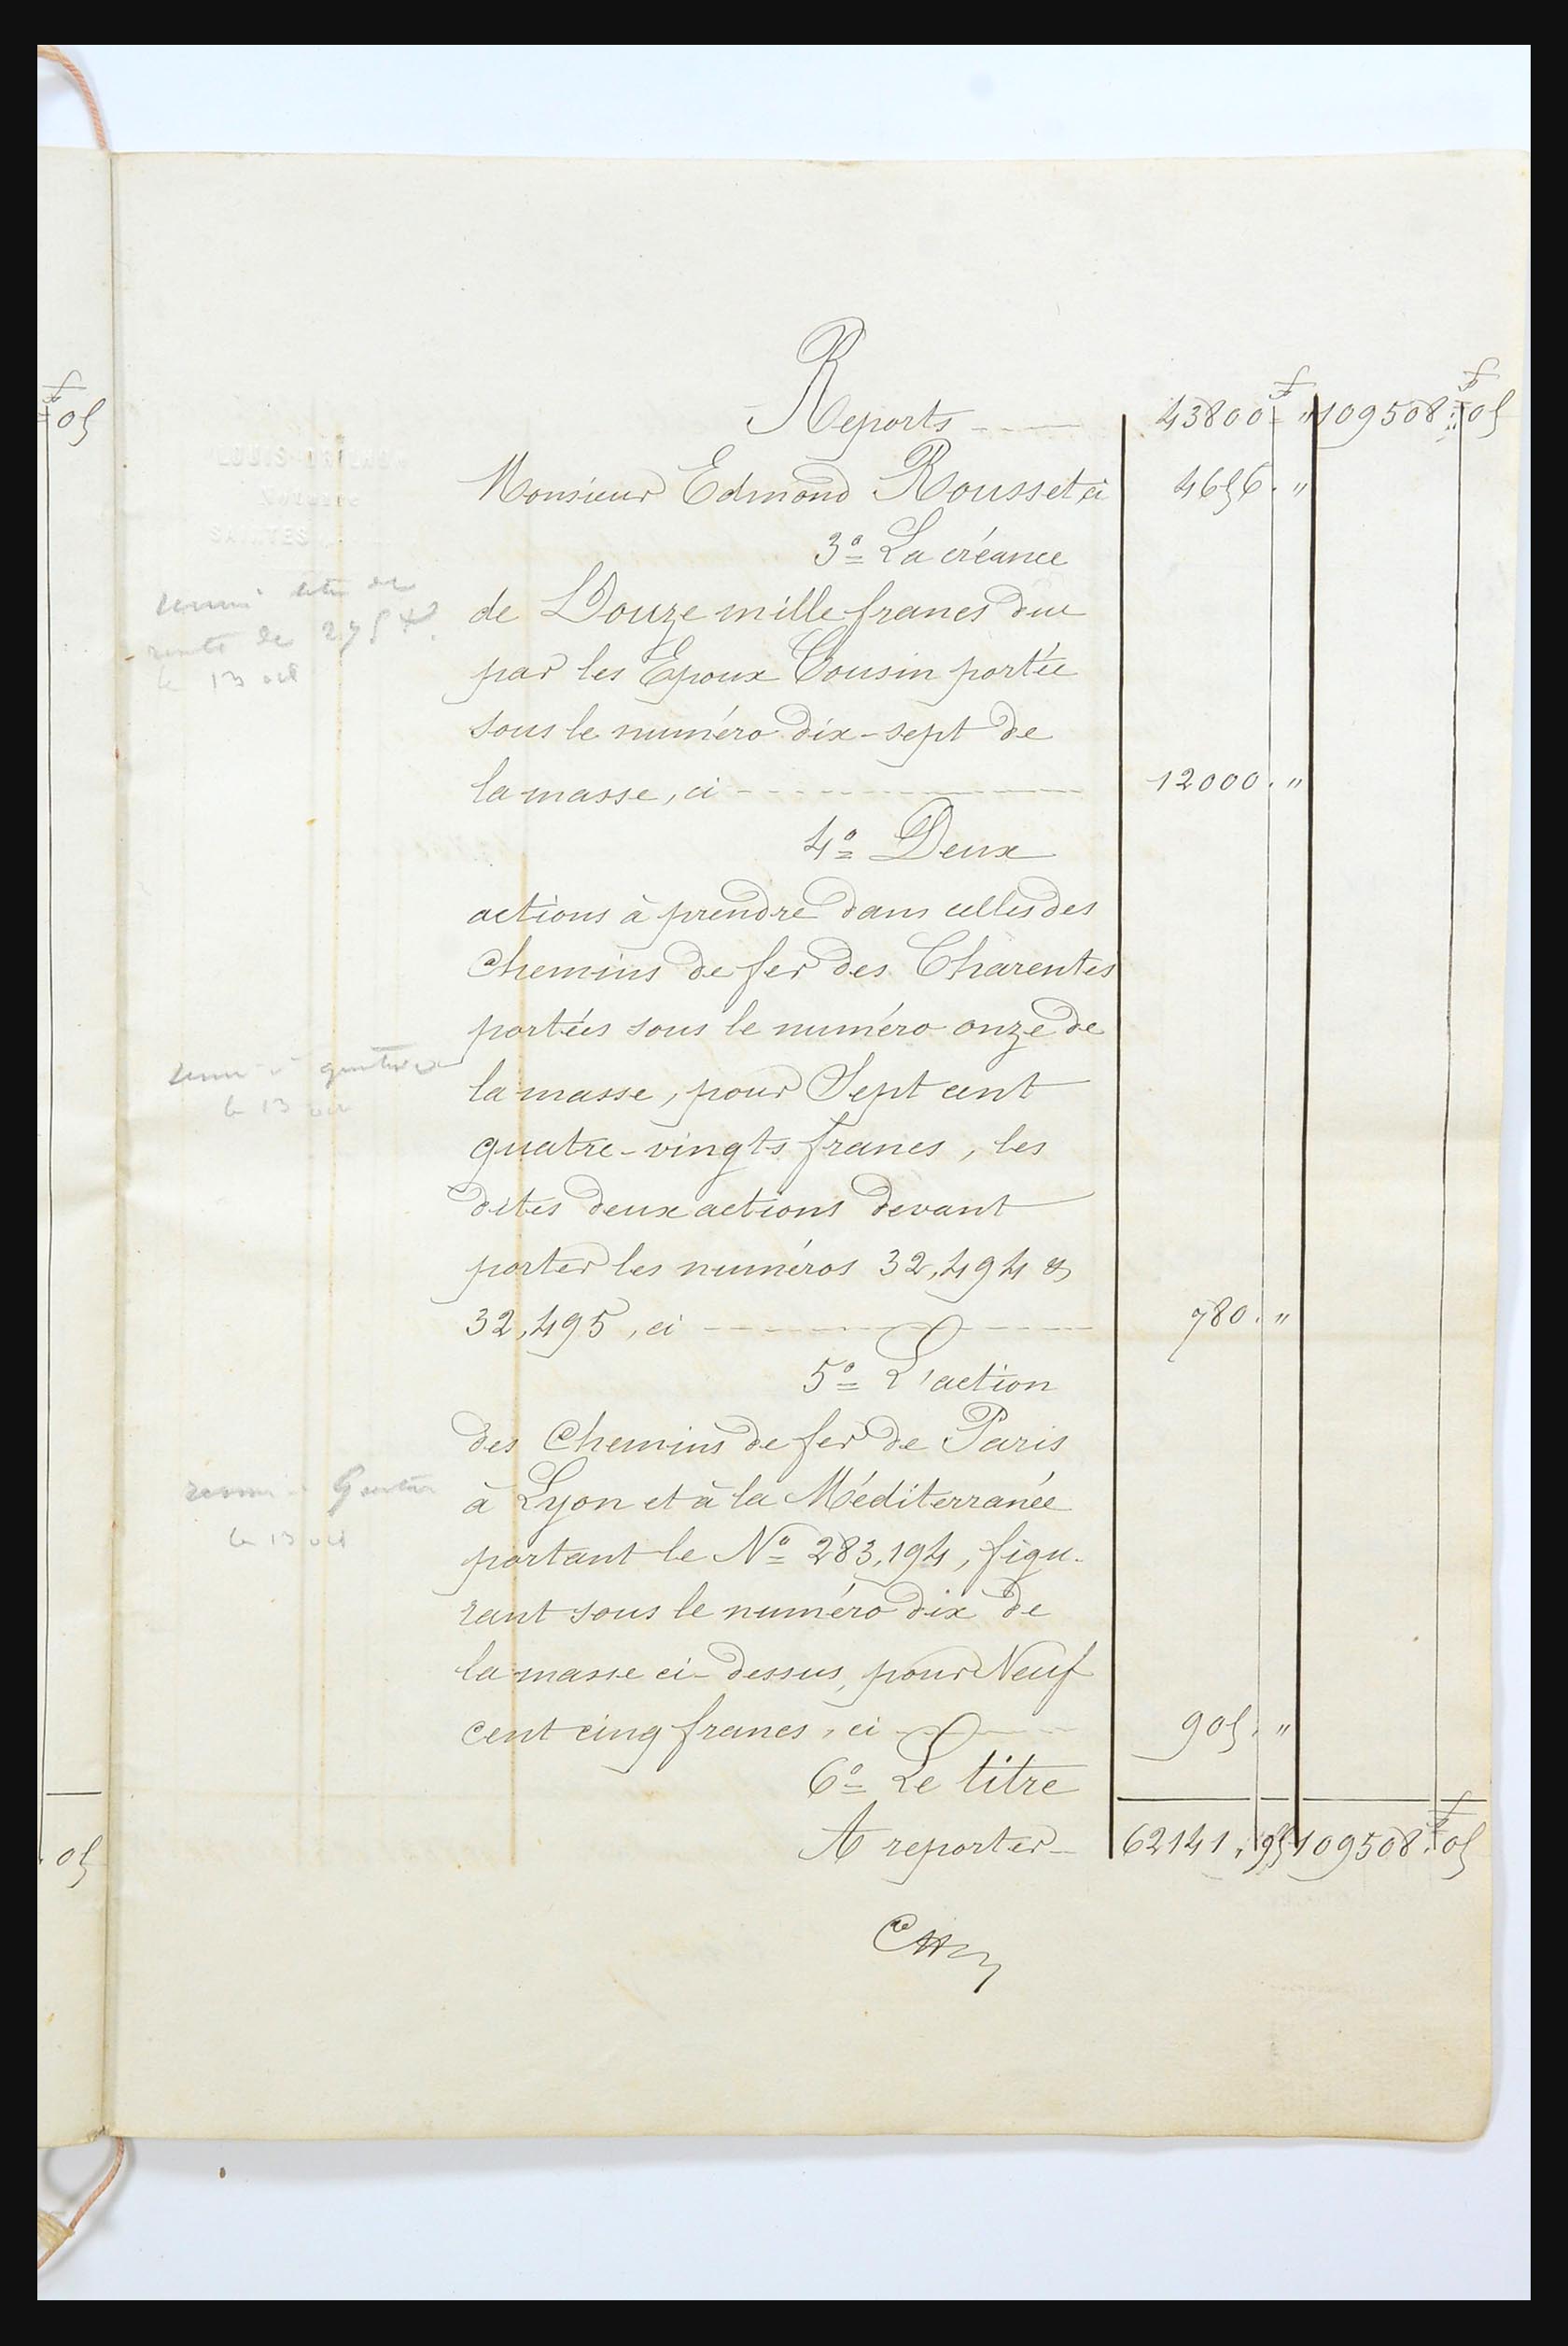 f f
Reports ---- 43800 " 109508 . 05
Monsieur Edmond Rousset ci 4656 . "
3º La créance
de Douze mille francs due
par les Epoux Cousin portée
sous le numéro dix-sept de
la masse, ci ---- 12000 . "
4º Deux
actions à prendre dans celles des
Chemins de fer des Charentes
portées sous le numéro onze de
la masse, pour Sept cent
quatre-vingts francs, les
dites deux actions devant
porter les numéros 32,494 &
32,495, ci ---- 780 . "
5º L'action
des Chemins de fer de Paris
à Lyon et à la Méditerranée
portant le Nº 283,194, figu-
rant sous le numéro dix de
la masse ci-dessus, pour Neuf
cent cinq francs, ci ---- 905 . "
6º Le titre
A reporter 62141 . 95 109508 . 05
05
05
SAINTES
de 275 f.
le 13 oct
le 13
le 13 oct